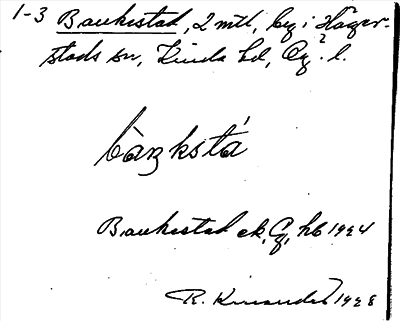 1-3 Baukestad, 2 mtl, by i Häger-
stads sn, Kinda hd, Ög. l.
bàɀkstá
Baukestad ek, G, hb 1924
R. 1928